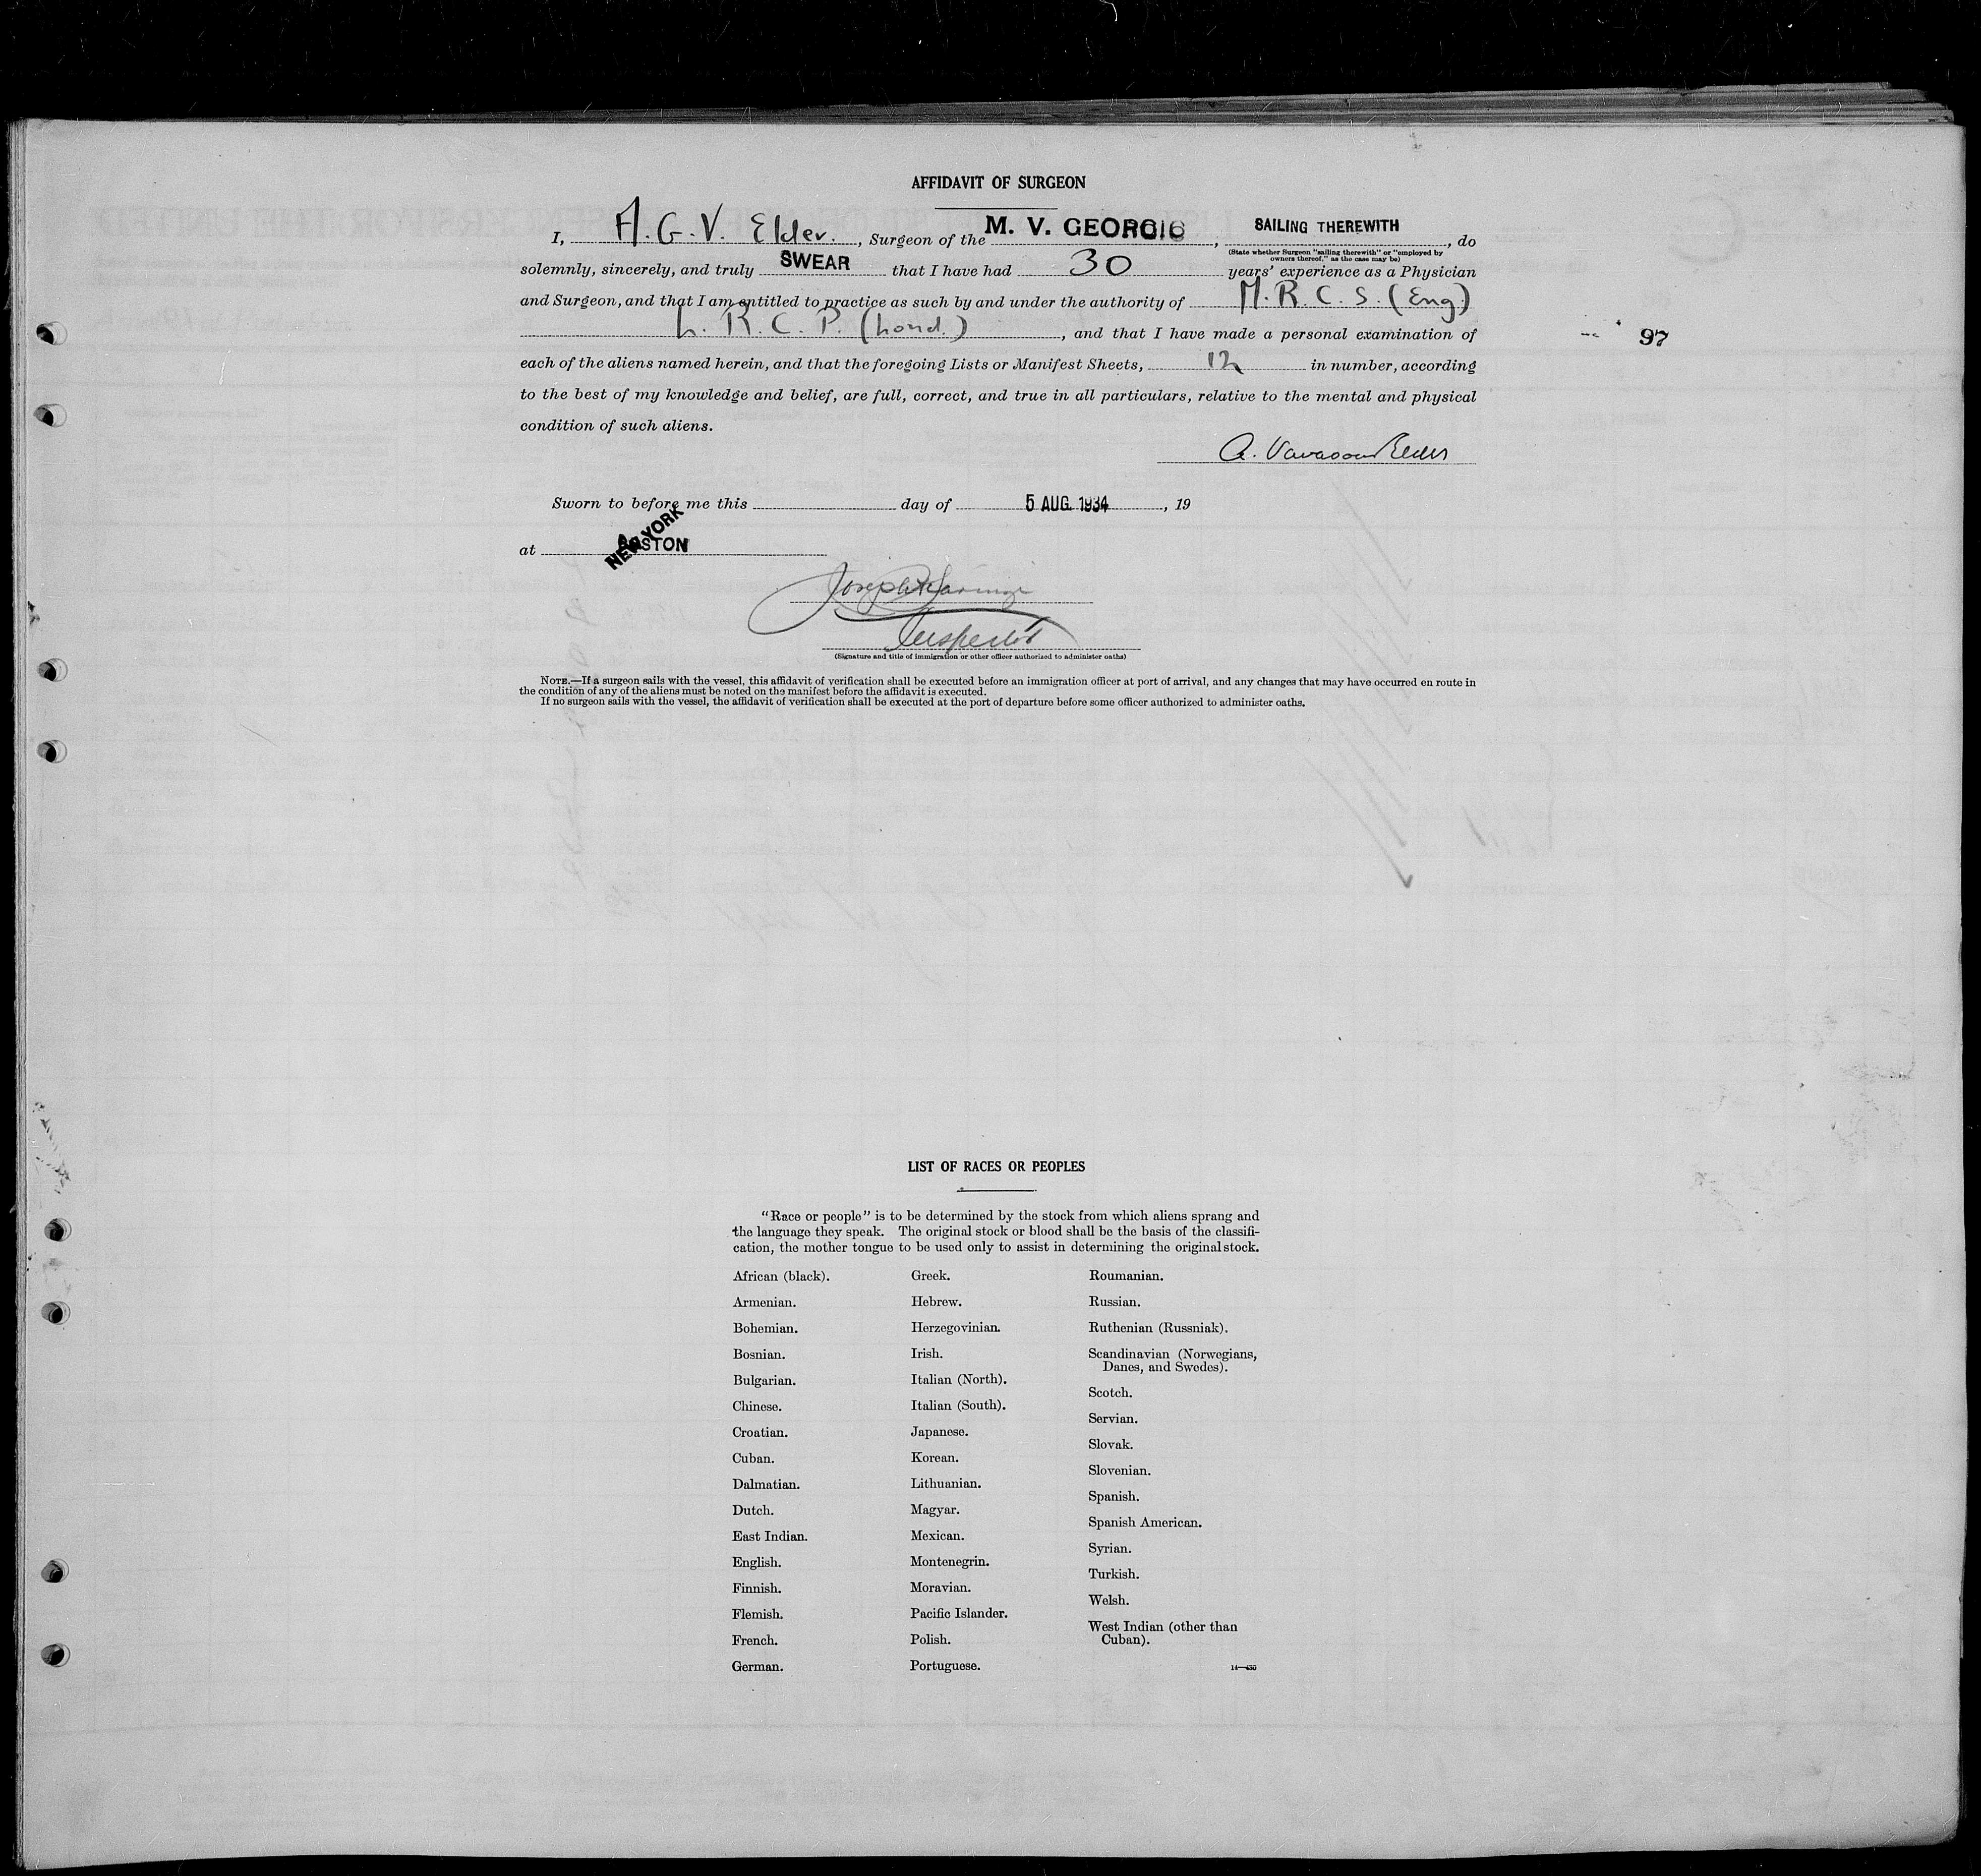 AFFIDAVIT OF SURGEON
I, A. G. V. Elder. , Surgeon of the M. V. GEORGIC , SAILING THEREWITH , do
(State whether Surgeon "sailing therewith" or "employed by
owners thereof," as the case may be)
solemnly, sincerely, and truly SWEAR that I have had 30 years' experience as a Physician
and Surgeon, and that I am entitled to practice as such by and under the authority of M. R. C. S. (Eng.)
L. R. C. P. (Lond.) , and that I have made a personal examination of
97
each of the aliens named herein, and that the foregoing Lists or Manifest Sheets, 12 in number, according
to the best of my knowledge and belief, are full, correct, and true in all particulars, relative to the mental and physical
condition of such aliens.
A. Vavasour Elder
Sworn to before me this day of 5 AUG. 1934 , 19
at BOSTON NEW YORK
Joseph
Inspector
(Signature and title of immigration or other officer authorized to administer oaths)
NOTE.—If a surgeon sails with the vessel, this affidavit of verification shall be executed before an immigration officer at port of arrival, and any changes that may have occurred en route in
the condition of any of the aliens must be noted on the manifest before the affidavit is executed.
If no surgeon sails with the vessel, the affidavit of verification shall be executed at the port of departure before some officer authorized to administer oaths.
LIST OF RACES OR PEOPLES
"Race or people" is to be determined by the stock from which aliens sprang and
the language they speak. The original stock or blood shall be the basis of the classifi-
cation, the mother tongue to be used only to assist in determining the original stock.
African (black).
Armenian.
Bohemian.
Bosnian.
Bulgarian.
Chinese.
Croatian.
Cuban.
Dalmatian.
Dutch.
East Indian.
English.
Finnish.
Flemish.
French.
German.
Greek.
Hebrew.
Herzegovinian.
Irish.
Italian (North).
Italian (South).
Japanese.
Korean.
Lithuanian.
Magyar.
Mexican.
Montenegrin.
Moravian.
Pacific Islander.
Polish.
Portuguese.
Roumanian.
Russian.
Ruthenian (Russniak).
Scandinavian (Norwegians,
Danes, and Swedes).
Scotch.
Servian.
Slovak.
Slovenian.
Spanish.
Spanish American.
Syrian.
Turkish.
Welsh.
West Indian (other than
Cuban).
14—430